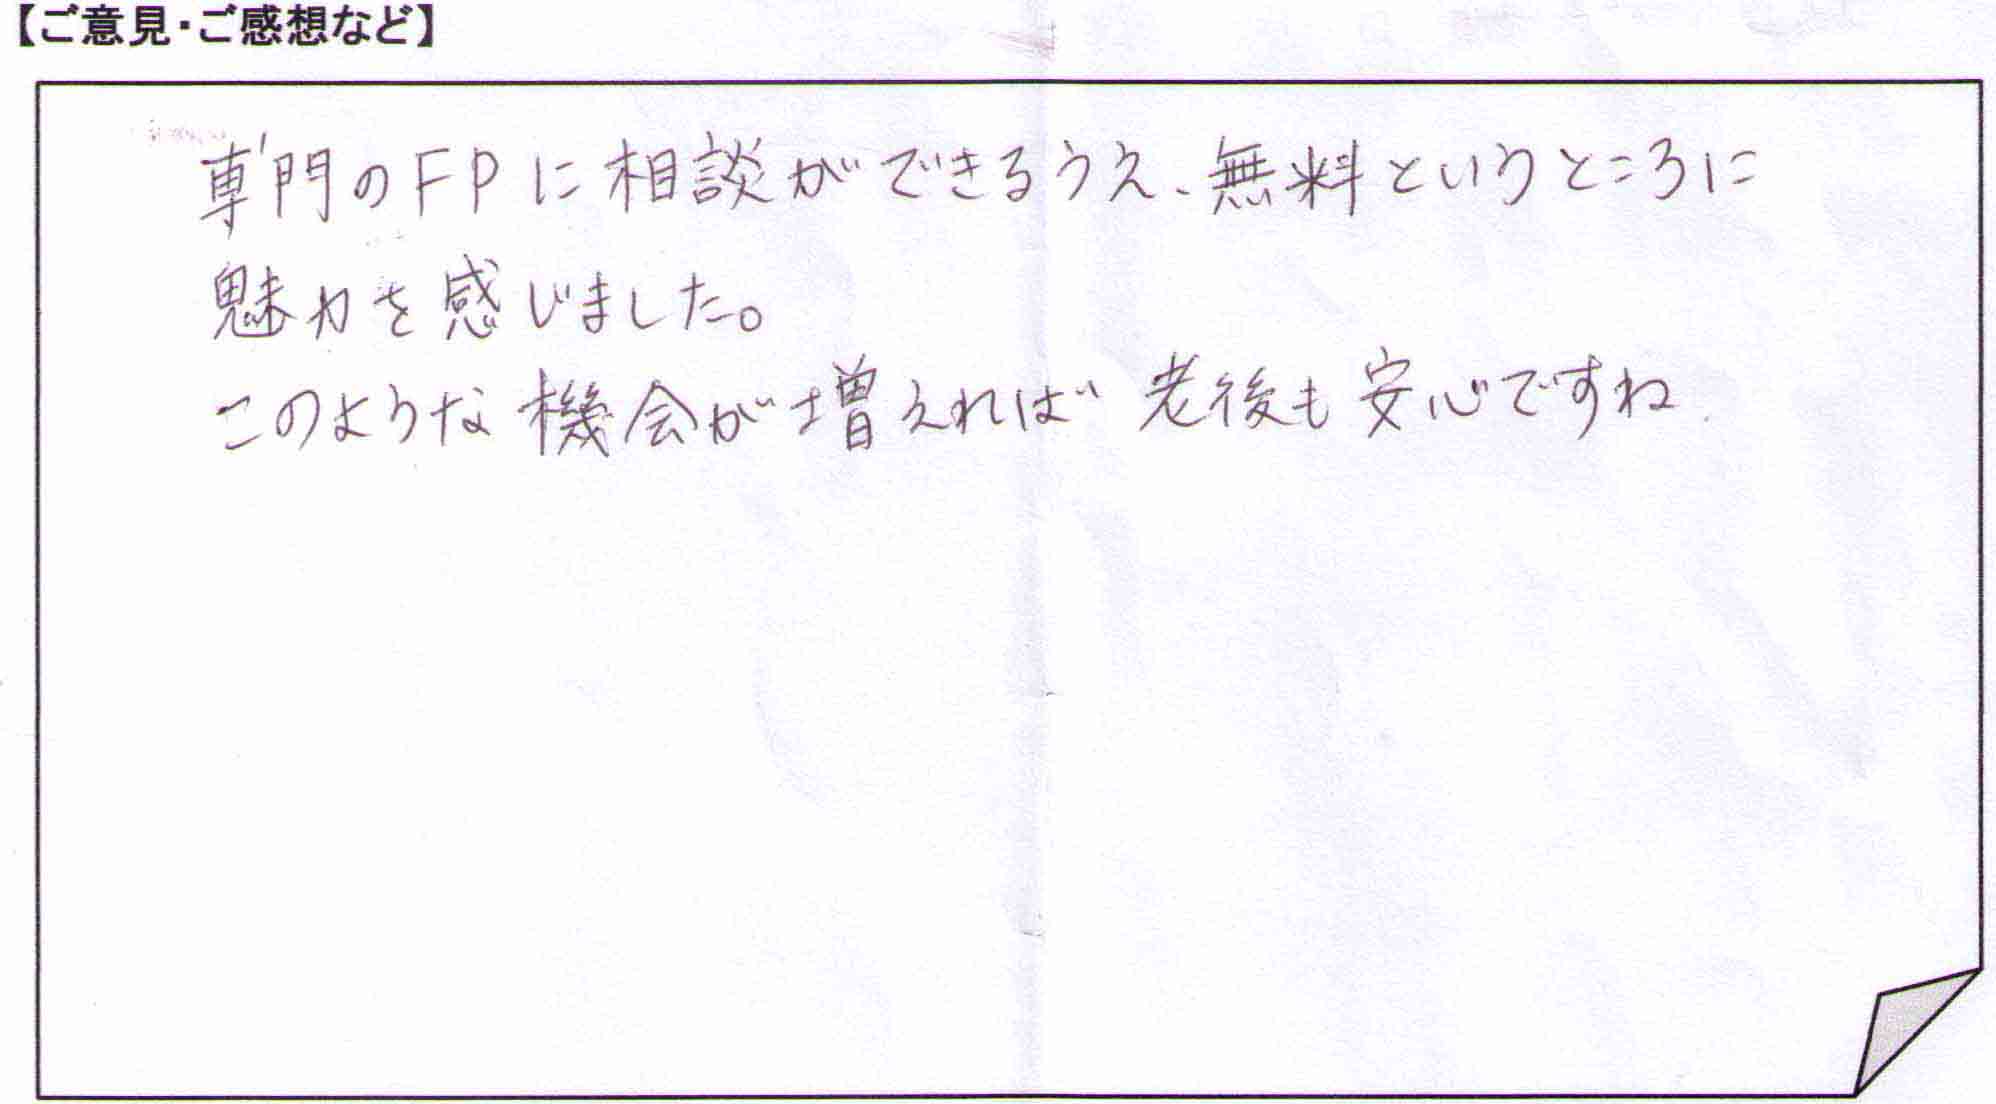 【ご意見・ご感想など】
専門のFPに相談ができるうえ、無料というところに
魅力を感じました。
このような機会が増えれば老後も安心ですね